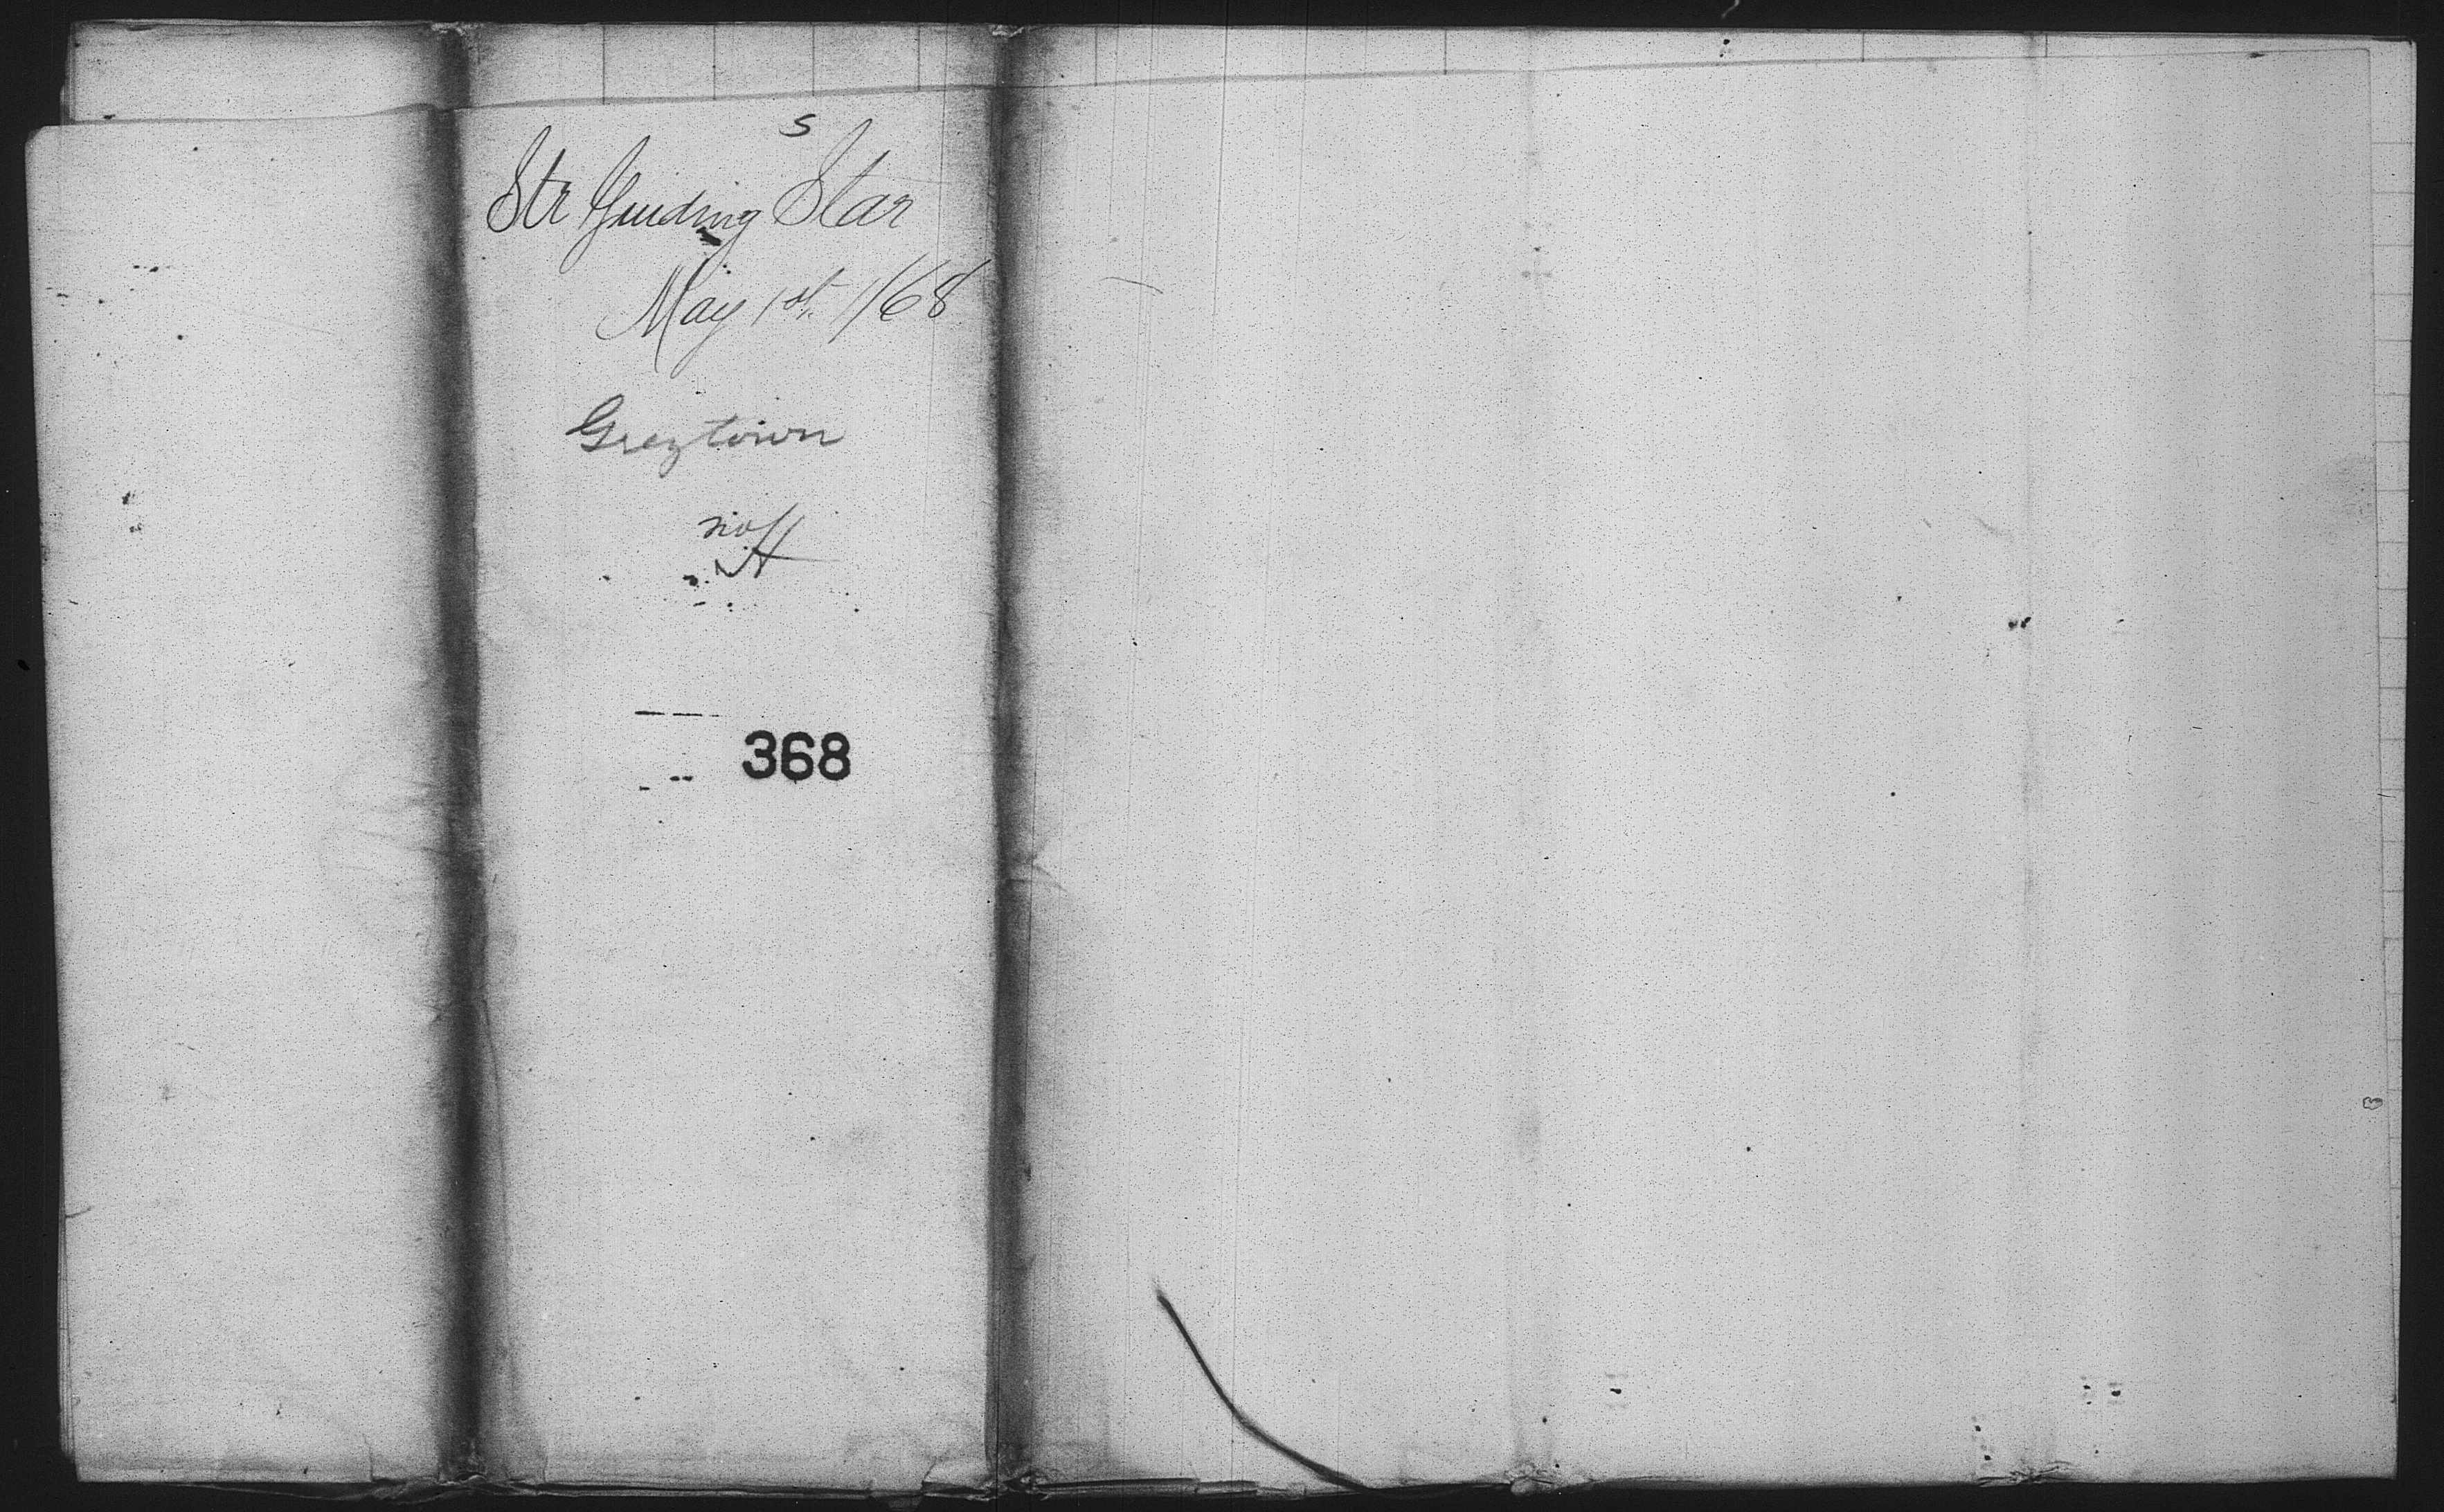 S
Str Guiding Star
May 1st 1/68
Greytown
368